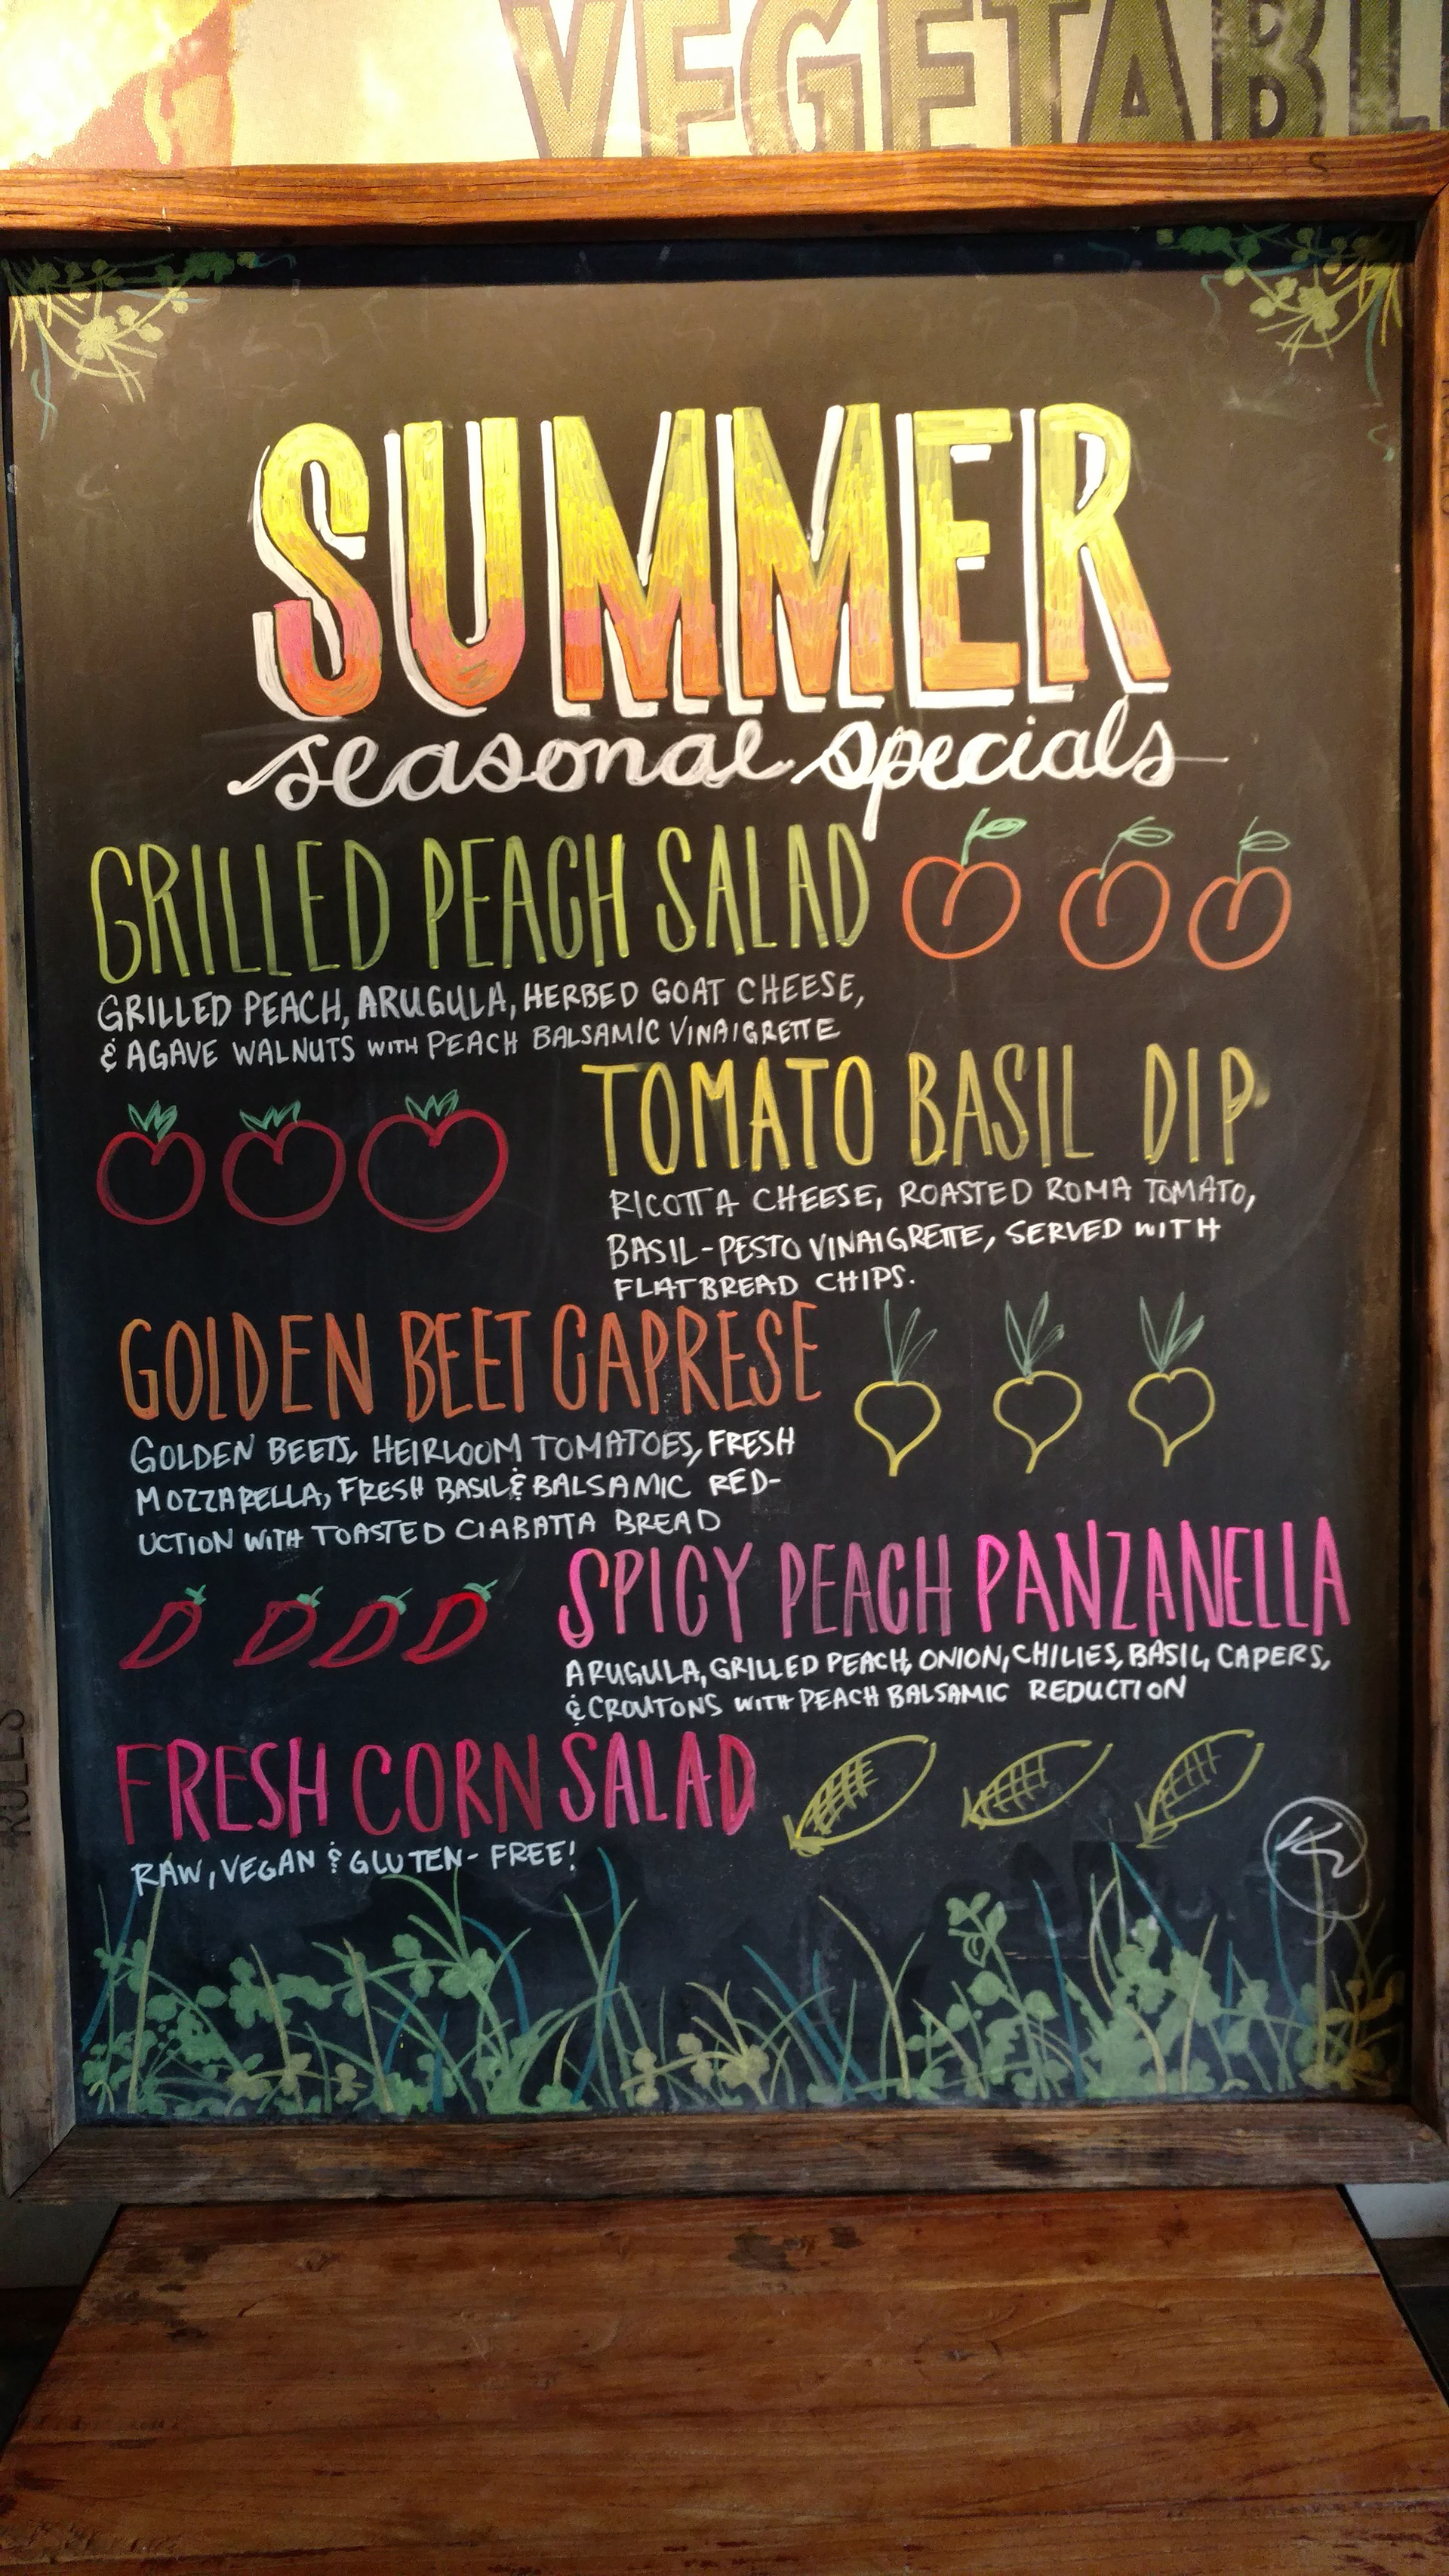 VEGETABL
SUMMER
seasonal specials
GRILLED PEACH SALAD
GRILLED PEACH, ARUGULA, HERBED GOAT CHEESE,
& AGAVE WALNUTS WITH PEACH BALSAMIC VINAIGRETTE
TOMATO BASIL DIP
RICOTTA CHEESE, ROASTED ROMA TOMATO,
BASIL-PESTO VINAIGRETTE, SERVED WITH
FLATBREAD CHIPS.
GOLDEN BEET CAPRESE
GOLDEN BEETS, HEIRLOOM TOMATOES, FRESH
MOZZARELLA, FRESH BASIL & BALSAMIC RED-
UCTION WITH TOASTED CIABATTA BREAD
SPICY PEACH PANZANELLA
ARUGULA, GRILLED PEACH, ONION, CHILIES, BASIL, CAPERS,
& CROUTONS WITH PEACH BALSAMIC REDUCTION
FRESH CORN SALAD
RAW, VEGAN & GLUTEN-FREE!